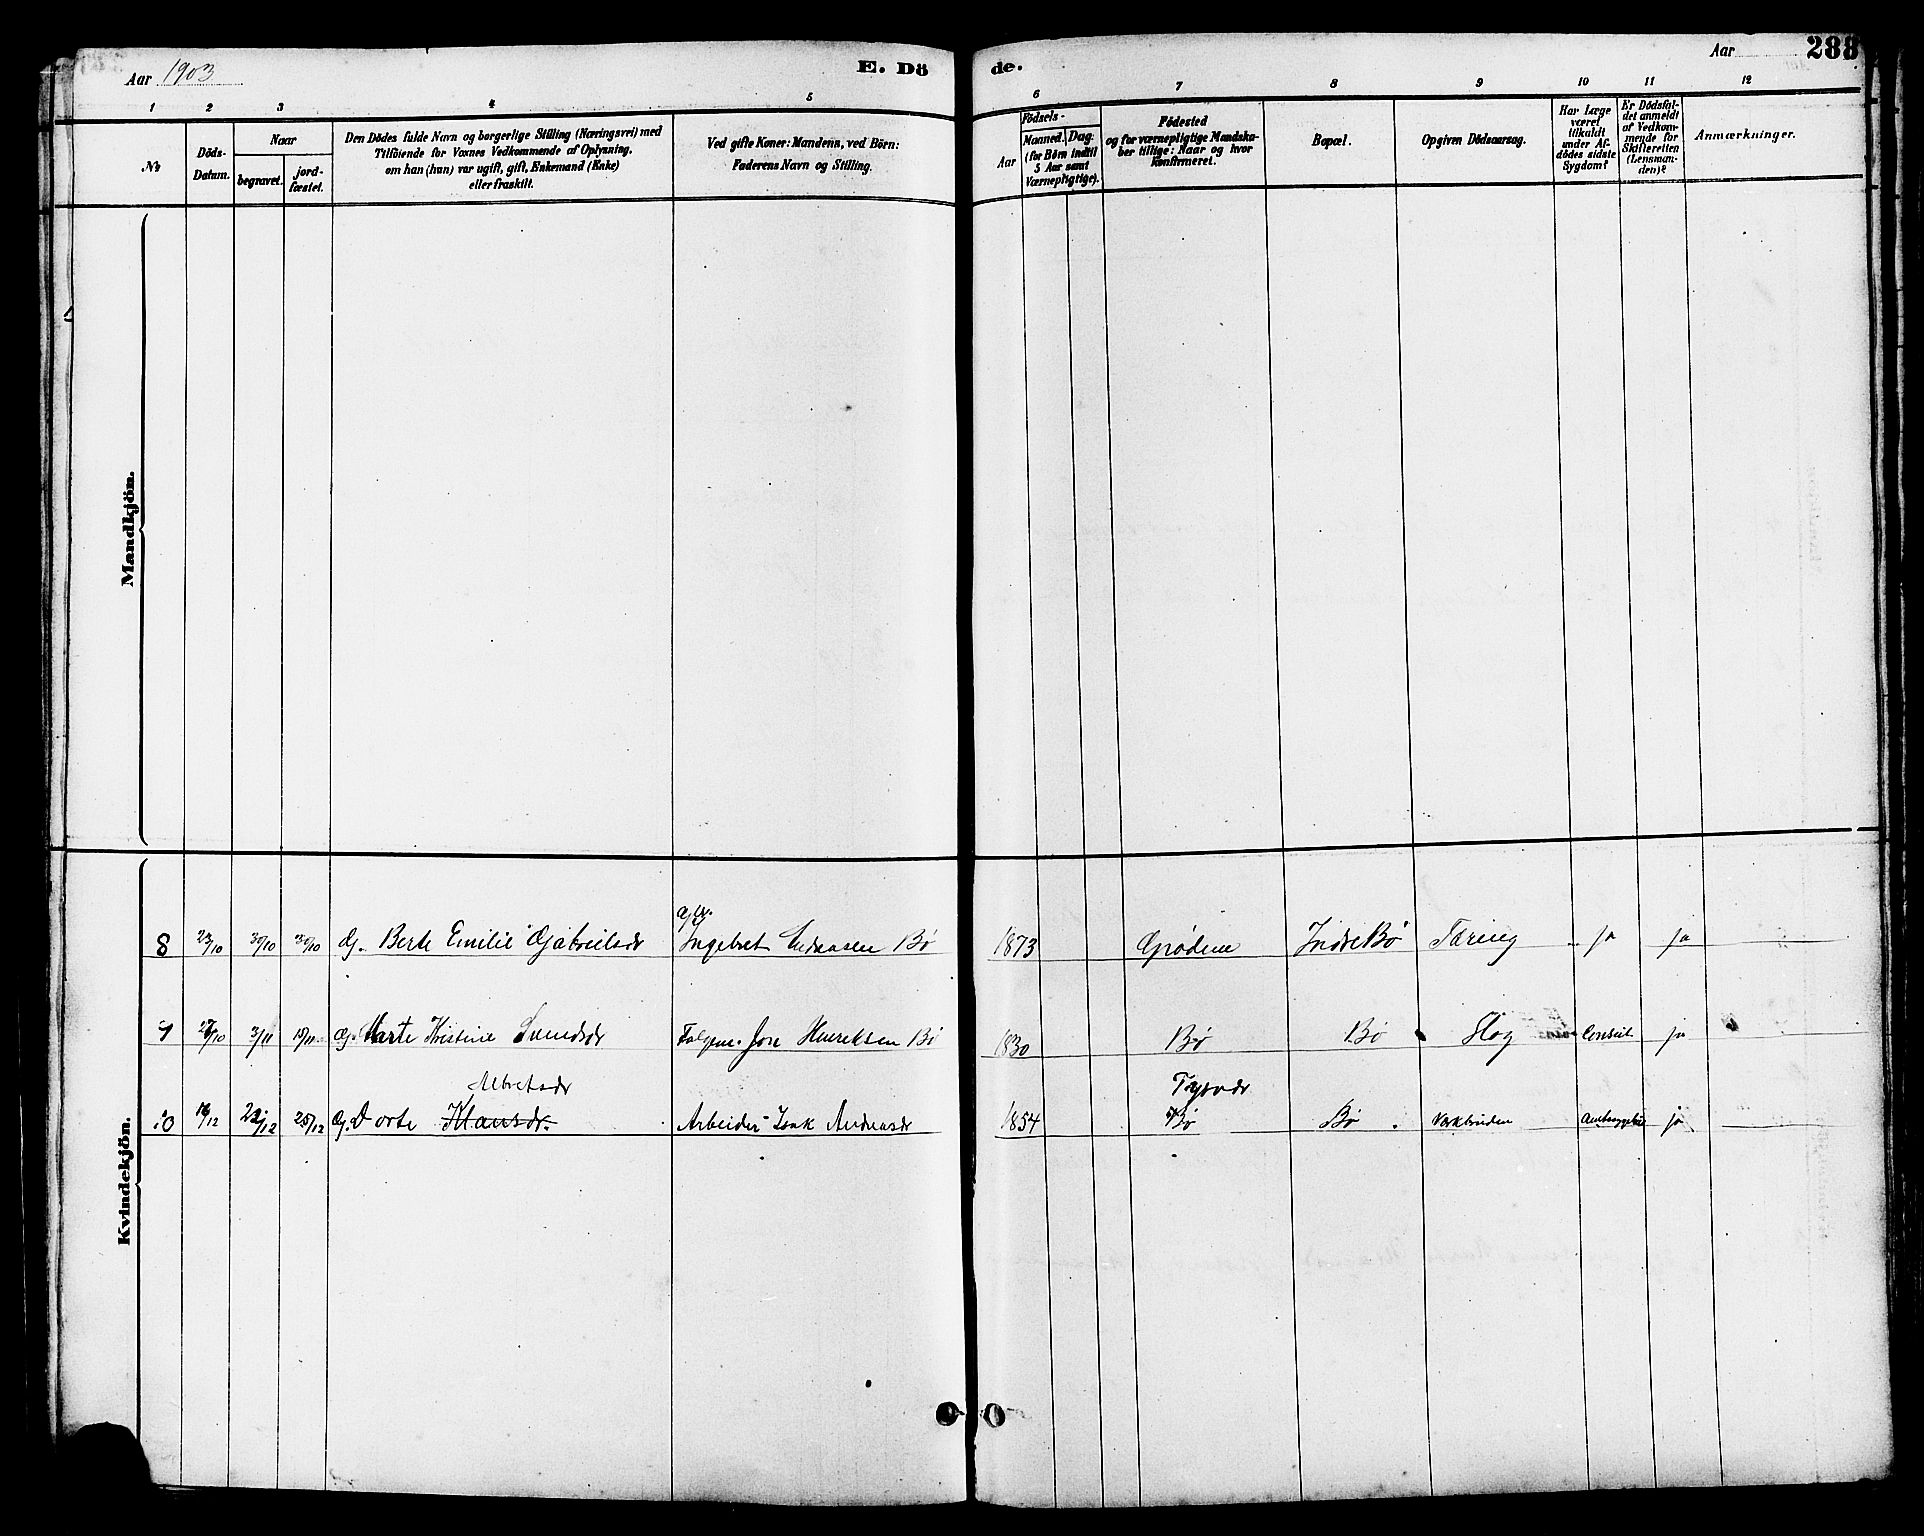 Aar 1903
E. Dö
de.
Aar
288
1 2 3 4 5 6 7 8 9 10 11 12
No
Döds-
Datum.
Naar
begravet.
jord-
fæstet.
Den Dödes fulde Navn og borgerlige Stilling (Næringsvei) med
Tilföiende for Voxnes Vedkommende af Oplysning,
om han (hun) var ugift, gift, Enkemand (Enke)
eller fraskilt.
Ved gifte Koner: Mandens, ved Börn:
Faderens Navn og Stilling.
Födsels-
Aar
Maaned.
Dag:
(for Börn indtil
5 Aar samt
Værnepligtige).
Födested
og for værnepligtige Mandska-
ber tillige: Naar og hvor
konfirmeret.
Bopæl.
Opgiven Dödsaarsag.
Har Læge
været
tilkaldt
under Af-
dödes sidste
Sygdom?
Er Dödsfal-
det anmeldt
af Vedkom-
mende for
Skifteretten
(Lensman-
den)?
Anmærkninger.
Mandkjön.
Kvindekjön.
8 23/10 30/10 30/10 Gj. Berte Emilie Gjabrielsdr Ingebret Andreasen Bø 1873 Grødem Indre Bø Tæring ja ja
9 27/10 3/11 15/11 Gj. Marte Kristine Svendsdr Jon Henriksen Bø 1830 Bø Bø Slag ja
Albretsdr
Tysvær
10 16/12 22/12 25/12 Gj. Dorte Klausdr. Arbeider Isak Andreasdr 1854 Bø Bø ja